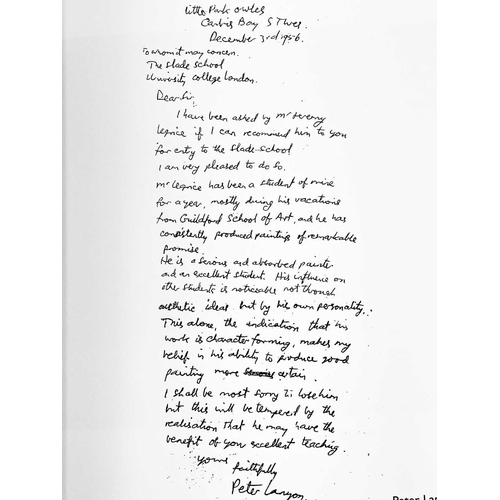 Little Park Owles
Carbis Bay St Ives
December 3rd 1956.
To whom it may concern.
The Slade School
University College London.
Dear Sir,
I have been asked by Mr Jeremy
Leprice if I can recommend him to you
for entry to the Slade school
I am very pleased to do so.
Mr Leprice has been a student of mine
for a year, mostly during his vacations
from Guildford School of Art, and he has
consistently produced paintings of remarkable
promise.
He is a serious and absorbed painter
and an excellent student. His influence on
other students is noticeable not through
aesthetic ideas but by his own personality.
This alone, the indication that his
work is character forming, makes my
belief in his ability to produce good
painting more certain.
I shall be most sorry to lose him
but this will be tempered by the
realisation that he may have the
benefit of your excellent teaching.
yours faithfully
Peter Lanyon.
Peter La